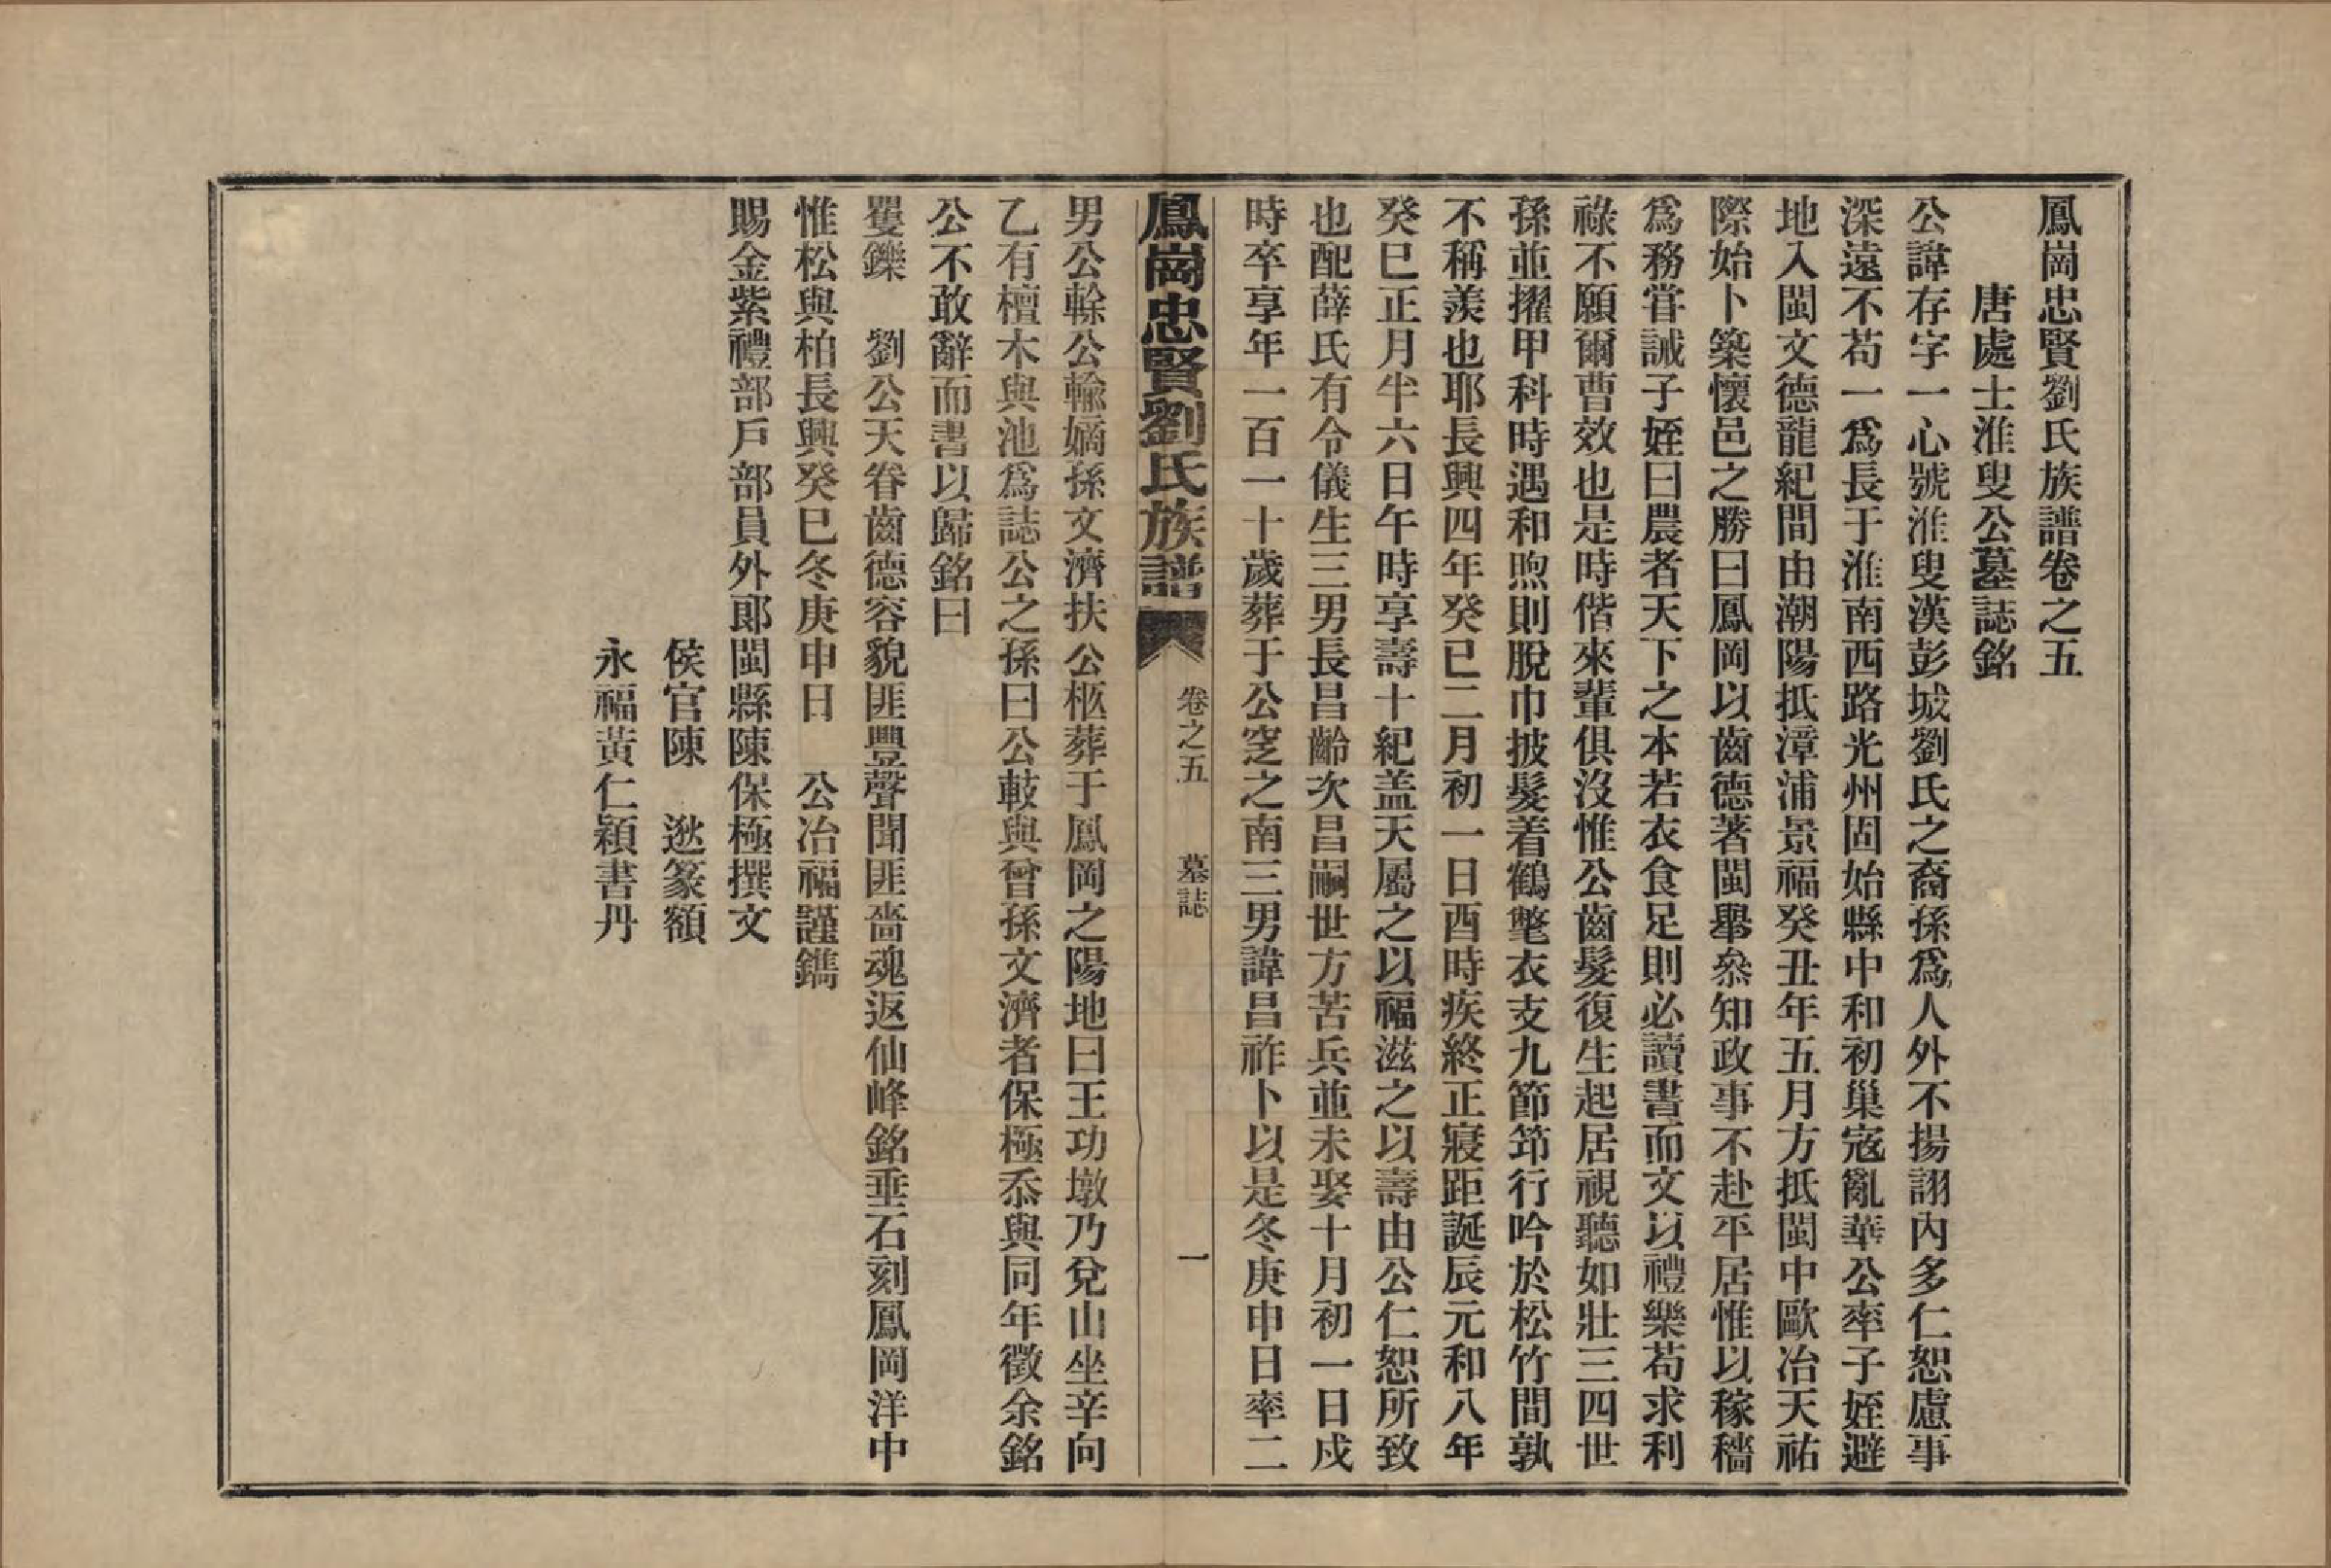 鳳崗忠賢劉氏族譜卷之五
唐處士淮叟公墓誌銘
公諱存字一心號淮叟漢彭城劉氏之裔孫爲人外不揚詡內多仁恕慮事
深遠不苟一爲長于淮南西路光州固始縣中和初巢寇亂華公率子姪避
地入閩文德龍紀間由潮陽抵漳浦景福癸丑年五月方抵閩中歐冶天祐
際始卜築懷邑之勝曰鳳岡以齒德著閩舉叅知政事不赴平居惟以稼穡
爲務嘗誡子姪曰農者天下之本若衣食足則必讀書而文以禮樂苟求利
祿不願爾曹效也是時偕來輩俱沒惟公齒髮復生起居視聽如壯三四世
孫並擢甲科時遇和煦則脫巾披髮着鶴氅衣支九節筇行吟於松竹間孰
不稱羨也耶長興四年癸巳二月初一日酉時疾終正寢距誕辰元和八年
癸巳正月半六日午時享壽十紀盖天屬之以福滋之以壽由公仁恕所致
也配薛氏有令儀生三男長昌齡次昌嗣世方苦兵並未娶十月初一日戌
時卒享年一百一十歲葬于公窆之南三男諱昌祚卜以是冬庚申日率二
鳳崗忠賢劉氏族譜 卷之五 墓誌 一
男公榦公輸嫡孫文濟扶公柩葬于鳳岡之陽地曰王功墩乃兌山坐辛向
乙有檀木與池爲誌公之孫曰公䡋與曾孫文濟者保極忝與同年徵余銘
公不敢辭而書以歸銘曰
矍鑠 劉公天眷齒德容貌匪豐聲聞匪嗇魂返仙峰銘垂石刻鳳岡洋中
惟松與柏長興癸巳冬庚申日 公冶福謹鐫
賜金紫禮部戶部員外郎閩縣陳保極撰文
侯官陳 逖篆額
永福黃仁穎書丹